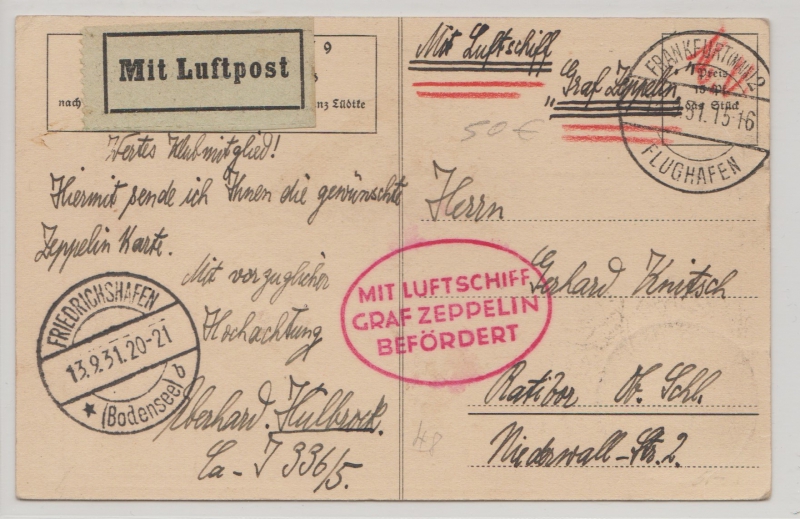 Mit Luftpost
9
nach
nz Lüdtke
Mit Luftschiff
"Graf Zeppelin"
50€
FRANKFURT (MAIN) 2
Preis
das Stück
31.15-16
FLUGHAFEN
Wertes Klubmitglied!
Hiermit sende ich Ihnen die gewünschte
Zeppelin Karte.
Mit vorzüglicher
Hochachtung
Eberhard.
Ca - J 336/5.
FRIEDRICHSHAFEN
13.9.31.20-21
(Bodensee) b
MIT LUFTSCHIFF
GRAF ZEPPELIN
BEFÖRDERT
Herrn
Gerhard Knitsch
Ratibor Ob. Schl.
Niederwall-Str. 2.